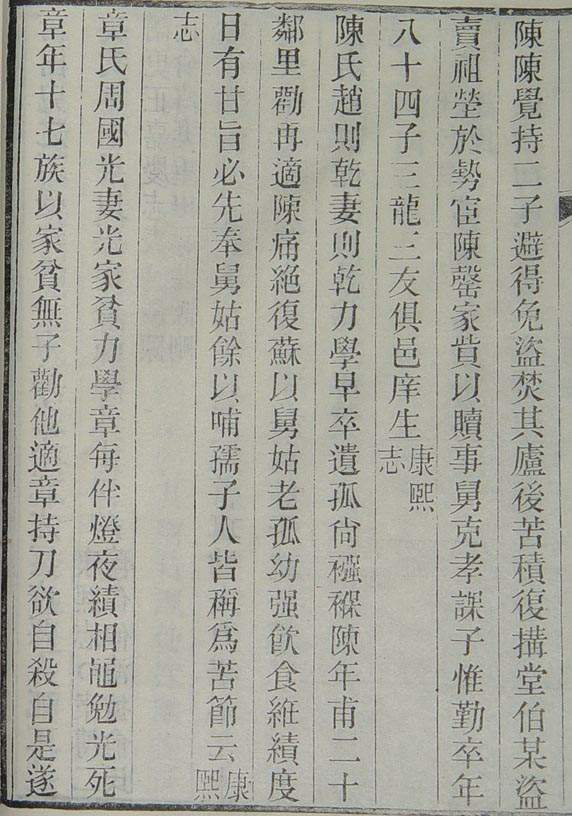 陳陳覺持二子避得免盜焚其廬後苦積復搆堂伯某盜
賣祖塋於勢宦陳罄家貲以贖事舅克孝課子惟勤卒年
八十四子三龍三友俱邑庠生康熙志
陳氏趙則乾妻則乾力學早卒遺孤尙襁褓陳年甫二十
鄰里勸再適陳痛絕復蘇以舅姑老孤幼强飮食絍績度
日有甘旨必先奉舅姑餘以哺孺子人皆稱爲苦節云康熙
志
章氏周國光妻光家貧力學章每伴燈夜績相黽勉光死
章年十七族以家貧無子勸他適章持刀欲自殺自是遂